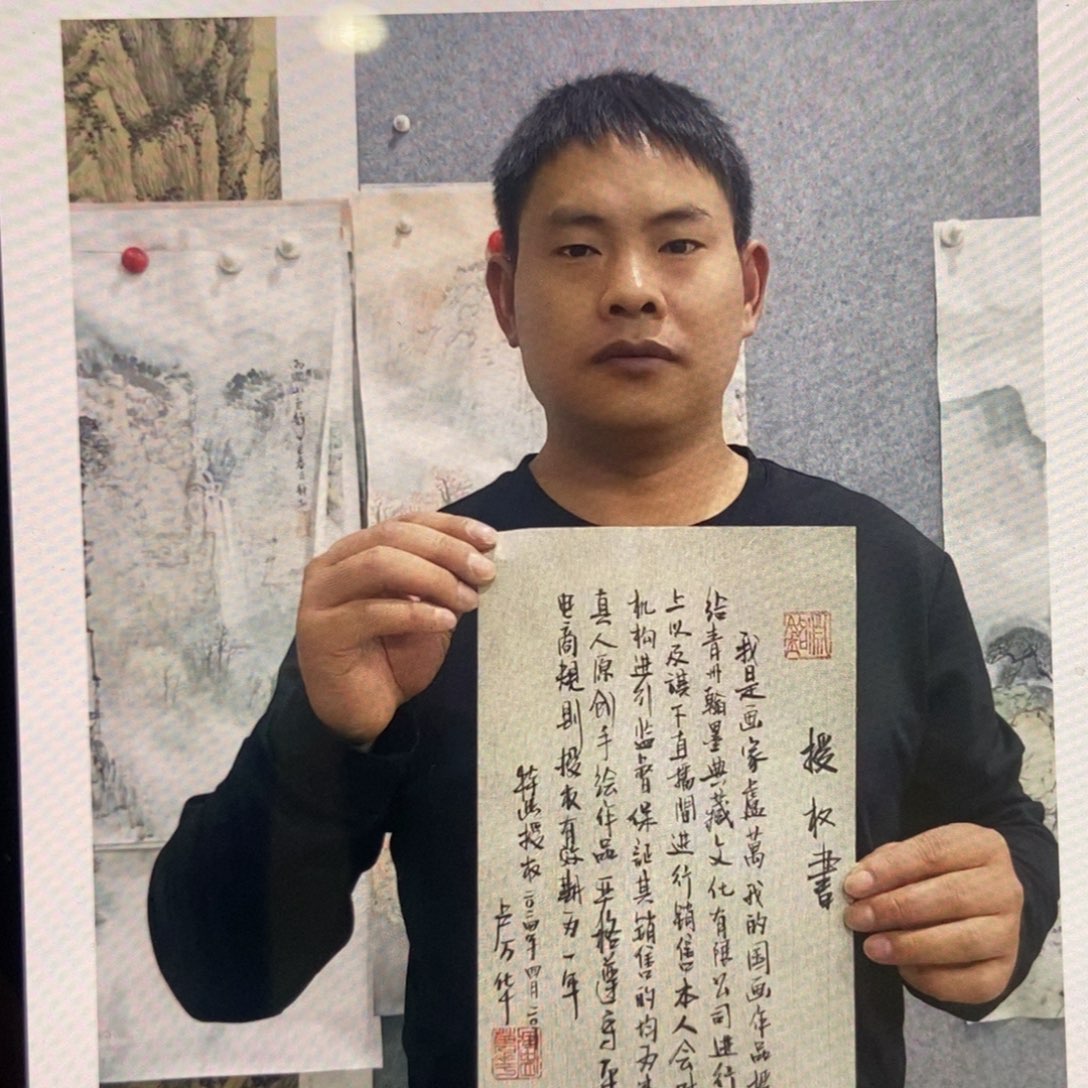 授权书
我是画家卢万 我的国画作品授
给青州翰墨典藏文化有限公司进行
上以及旗下直播間进行销售本人会
机构进行监督保证其销售的均为
真人原创手绘作品严格遵守
电商规则授权有效期为一年
特此授权
二〇二四年四月二〇
卢万华